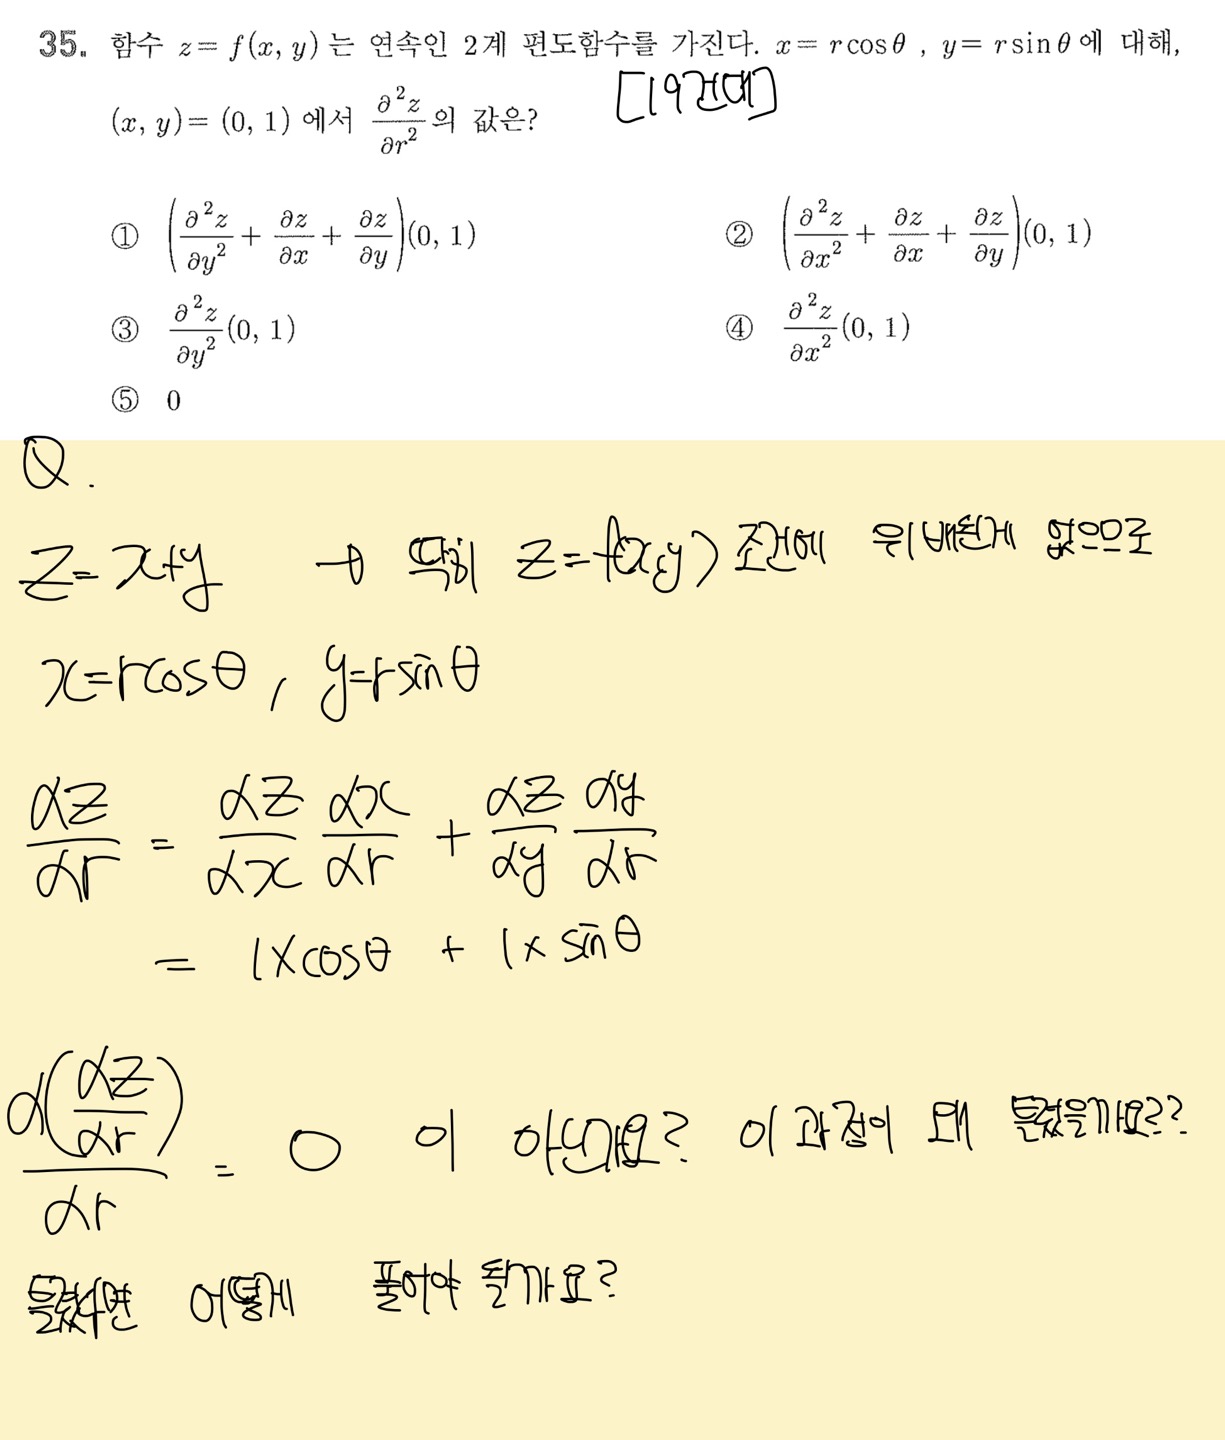 35. 함수 z = f(x, y) 는 연속인 2계 편도함수를 가진다. x = r cos θ , y = r sin θ 에 대해,
(x, y) = (0, 1) 에서 ∂²z/∂r² 의 값은?
[19건대]
① (∂²z/∂y² + ∂z/∂x + ∂z/∂y)(0, 1) ② (∂²z/∂x² + ∂z/∂x + ∂z/∂y)(0, 1)
③ ∂²z/∂y² (0, 1) ④ ∂²z/∂x² (0, 1)
⑤ 0
Q.
z = x+y → 딱히 z = f(x,y) 조건에 위배된게 없으므로
x = rcosθ , y = rsinθ
dz/dr = dz/dx dx/dr + dz/dy dy/dr
= 1×cosθ + 1×sinθ
d(dz/dr)/dr = 0 이 아닌가요? 이 과정이 왜 틀렸을까요??
틀렸다면 어떻게 풀어야 될까요?